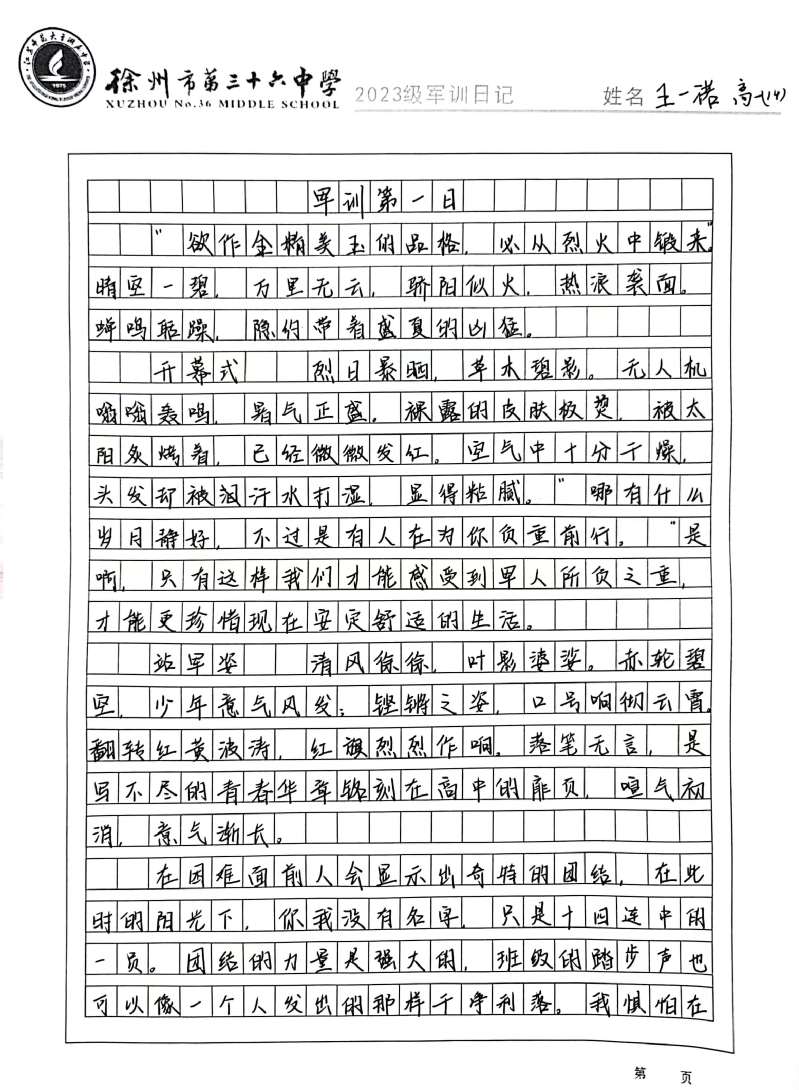 徐州市第三十六中学
XUZHOU No.36 MIDDLE SCHOOL
2023级军训日记
姓名 王一诺 高一(14)
1975
军训第一日
“欲作金精美玉的品格，必从烈火中锻来”。
晴空一碧，万里无云，骄阳似火，热浪袭面。
蝉鸣聒躁，隐约带着盛夏的凶猛。
开幕式 烈日暴晒，草木碧影。无人机
嗡嗡轰鸣，暑气正盛，裸露的皮肤极烫，被太
阳炙烤着，已经微微发红。空气中十分干燥，
头发却被汩汗水打湿，显得粘腻。“哪有什么
岁月静好，不过是有人在为你负重前行。”是
啊，只有这样我们才能感受到军人所负之重，
才能更珍惜现在安定舒适的生活。
站军姿 清风徐徐，叶影婆娑。赤轮碧
空，少年意气风发；铿锵之姿，口号响彻云霄。
翻转红黄波涛，红旗烈烈作响。落笔无言，是
写不尽的青春华章铭刻在高中的扉页，喧气初
消，意气渐长。
在困难面前人会显示出奇特的团结，在此
时的阳光下，你我没有名字，只是十四连中的
一员。团结的力量是强大的，班级的踏步声也
可以像一个人发出的那样干净利落。我惧怕在
第 页